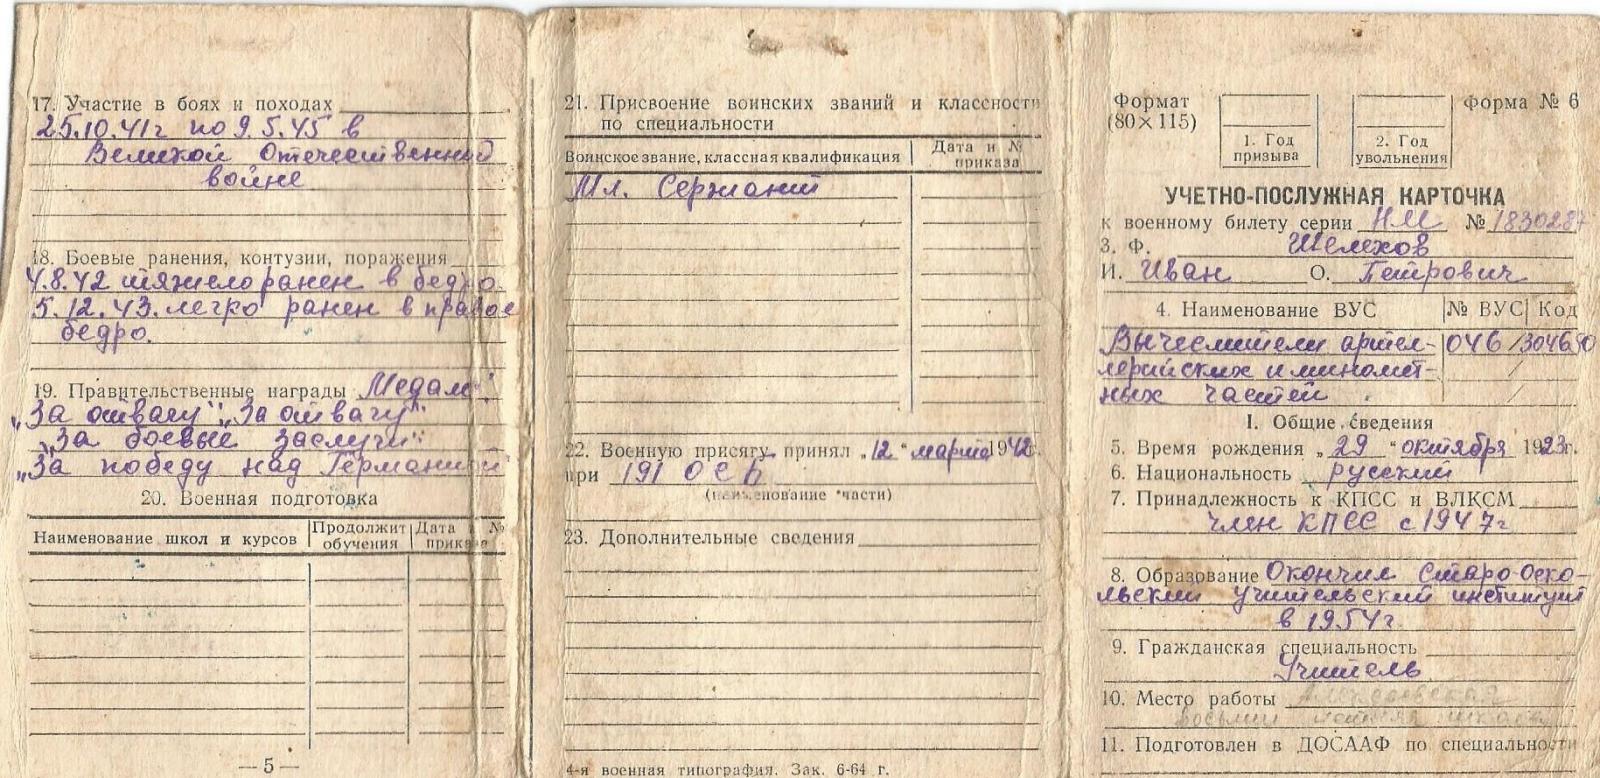 17. Участие в боях и походах
25.10.41г по 9.5.45 в
Великой Отечественной
войне
18. Боевые ранения, контузии, поражения
4.8.42 тяжело ранен в бедро.
5.12.43. легко ранен в правое
бедро.
19. Правительственные награды Медаль:
„За отвагу", „За отвагу"
„За боевые заслуги"
„За победу над Германией"
20. Военная подготовка
Наименование школ и курсов
Продолжит обучения
Дата и № приказа
— 5 —
21. Присвоение воинских званий и классности
по специальности
Воинское звание, классная квалификация
Дата и № приказа
Мл. Сержант
22. Военную присягу принял „12" марта 1942
при 191 ОСБ
(наименование части)
23. Дополнительные сведения
4-я военная типография. Зак. 6-64 г.
Формат
(80×115)
1. Год призыва
2. Год увольнения
Форма № 6
УЧЕТНО-ПОСЛУЖНАЯ КАРТОЧКА
к военному билету серии НМ № 1830287
3. Ф. Шелехов
И. Иван О. Петрович
4. Наименование ВУС № ВУС Код
Вычеслители артел- 046 /304690
лерийских и миномет- /
ных частей /
I. Общие сведения
5. Время рождения „29" октября 1923г.
6. Национальность русский
7. Принадлежность к КПСС и ВЛКСМ
член КПСС с 1947г
8. Образование Окончил Старо-Оско-
льский учительский институт
в 1954г.
9. Гражданская специальность
Учитель
10. Место работы
школа
11. Подготовлен в ДОСААФ по специальности